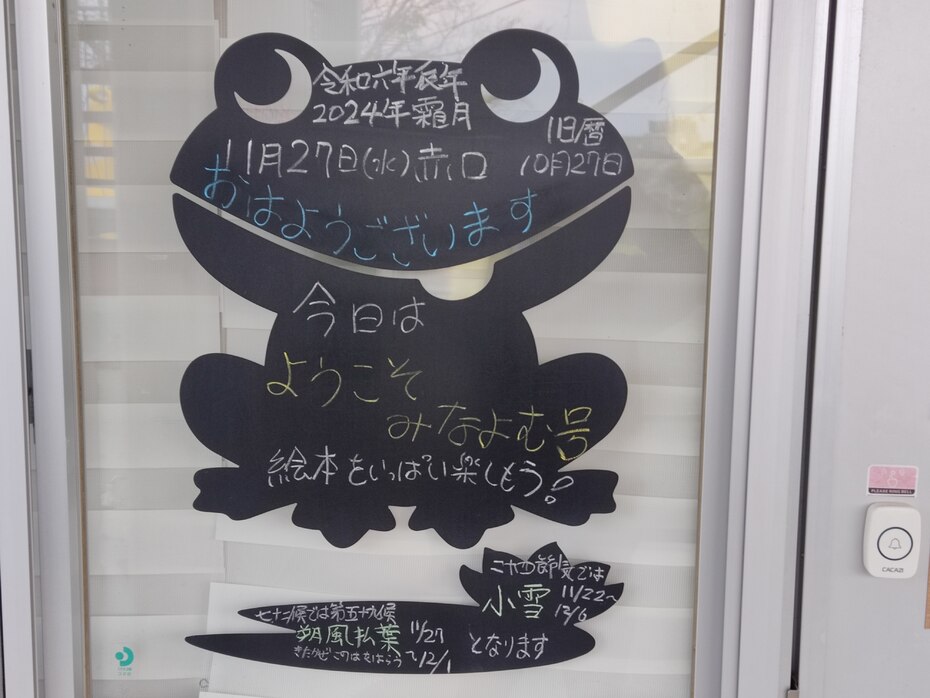 令和六年辰年
2024年霜月
旧暦
10月27日
11月27日(水)赤口
おはようございます
今日は
ようこそ
みなよむ号
絵本をいっぱい楽しもう!
二十四節気では
小雪 11/22〜
12/6
七十二候では第五十九候
朔風払葉 11/27
きたかぜこのはをはらう 〜12/1
となります
PLEASE RING BELL
CACAZI